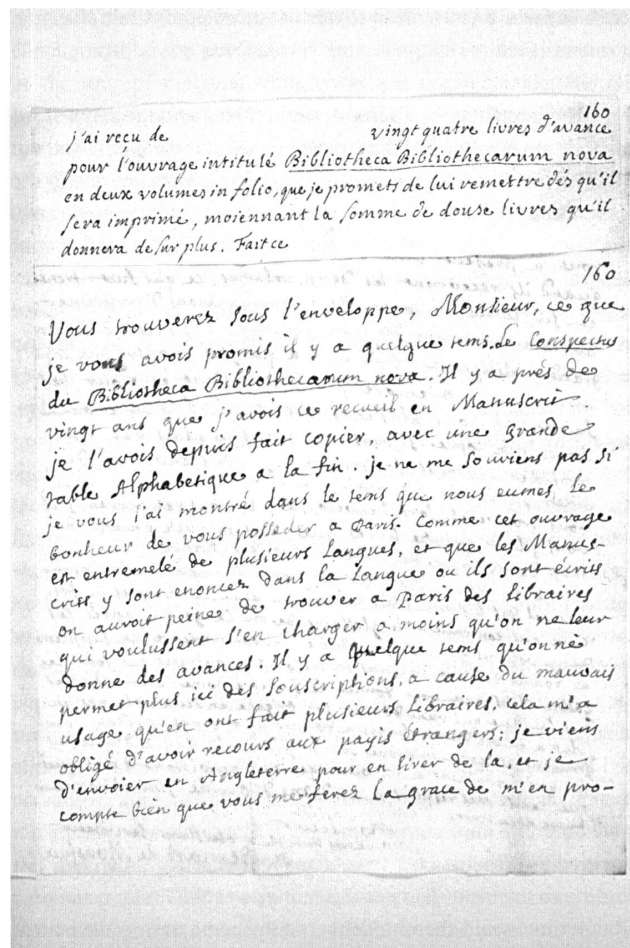 160
j'ai recu de vingt quatre livres d'avance
pour l'ouvrage intitulé Bibliotheca Bibliothecarum nova
en deux volumes in folio, que je promets de lui remettre dés qu'il
sera imprimé, moiennant la somme de douse livres qu'il
donnera de sur plus. Fait ce
160
Vous trouverez sous l'enveloppe, Monsieur, ce que
je vous avois promis il y a quelque tems. le Conspectus
du Bibliotheca Bibliothecarum nova. Il y a prés de
vingt ans que j'avois ce recueil en Manuscrit
je l'avois depuis fait copier, avec une grande
table Alphabetique a la fin. je ne me souviens pas si
je vous l'ai montré dans le tems que nous eumes le
bonheur de vous posseder a Paris. Comme cet ouvrage
est entremelé de plusieurs Langues, et que les Manus-
crits y sont enoncez dans la Langue ou ils sont écrits
on auroit peine de trouver a Paris des libraires
qui voulussent s'en charger a moins qu'on ne leur
donne des avances. Il y a quelque tems qu'on ne
permet plus ici des souscriptions, a cause du mauvais
usage qu'en ont fait plusieurs Libraires, cela m'a
obligé d'avoir recours aux payis étrangers; je viens
d'envoier en Angleterre pour en tirer de la, et je
compte bien que vous me ferez la grace de m'en pro-